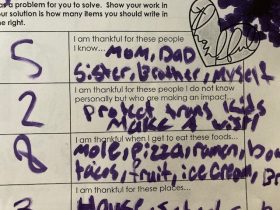 as a problem for you to solve. Show your work in
our solution is how many items you should write in
he right.
Thankful
5
I am thankful for these people
I know... Mom, Dad
Sister, Brother, Myself
2
I am thankful for these people I do not know
personally but who are making an impact...
Protect trans kids
wish
8
I am thankful when I get to eat these foods...
Mole, pizza, ramen,
Tacos, fruit, ice cream,
I am thankful for these places...
House, s